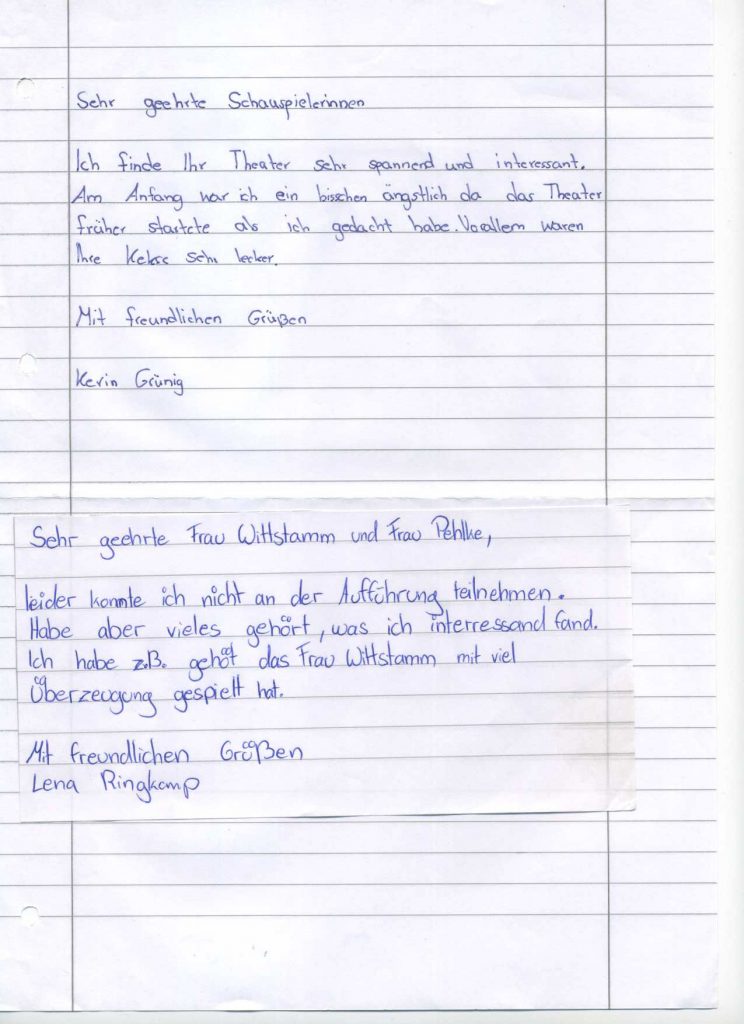 Sehr geehrte Schauspielerinnen
Ich finde Ihr Theater sehr spannend und interessant.
Am Anfang war ich ein bisschen ängstlich da das Theater
früher startete als ich gedacht habe. Vorallem waren
Ihre Kekse sehr lecker.
Mit freundlichen Grüßen
Kevin Grünig
Sehr geehrte Frau Wittstamm und Frau Pehlke,
leider konnte ich nicht an der Aufführung teilnehmen.
Habe aber vieles gehört, was ich interressand fand.
Ich habe z.B. gehöt das Frau Wittstamm mit viel
Überzeugung gespielt hat.
Mit freundlichen Größen
Lena Ringkamp